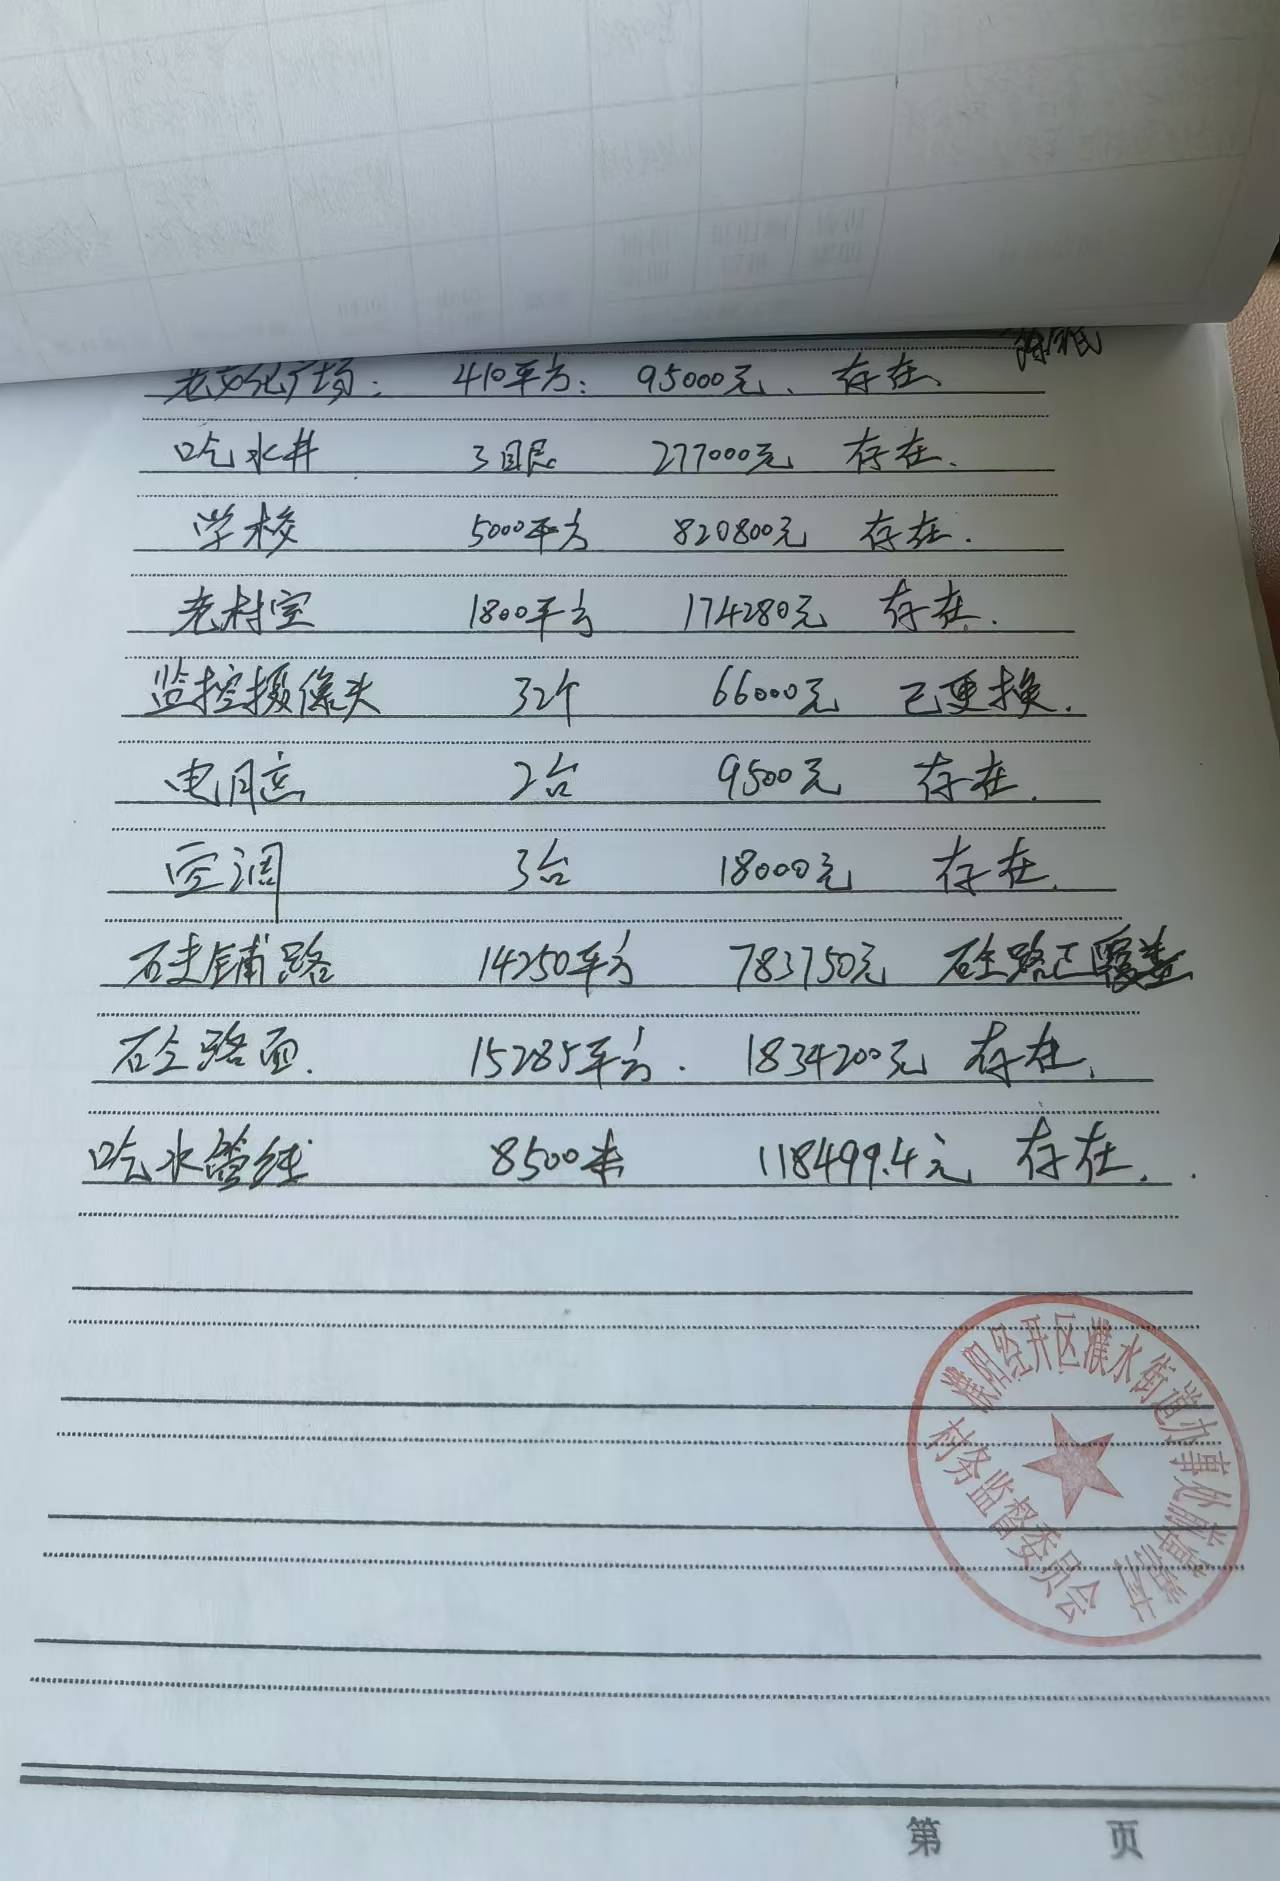 老文化广场: 410平方: 95000元、存在、
吃水井 3眼 277000元 存在.
学校 5000平方 820800元 存在.
老村室 1800平方 174280元 存在.
监控摄像头 32个 66000元 已更换.
电脑 2台 9500元 存在.
空调 3台 18000元 存在.
砼铺路 14250平方 783750元 砼路已覆盖
砼路面. 15285平方. 1834200元 存在.
吃水管线 8500米 118499.4元 存在.
濮阳经开区濮水街道办事处
村务监督委员会
第 页